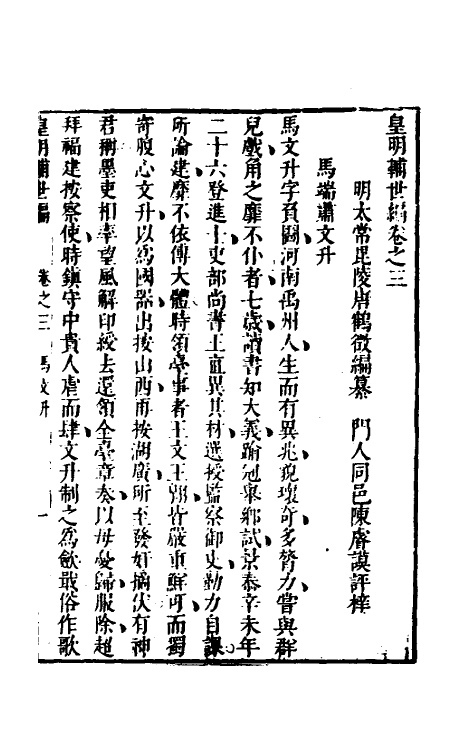 皇明輔世編卷之三
明太常毘陵唐鶴徵編纂 門人同邑陳睿謨評梓
馬端肅文升
馬文升字負圖河南禹州人生而有異兆貌瓌奇多膂力嘗與群
兒戲角之靡不仆者七歲讀書知大義踰冠舉鄉試景泰辛未年
二十六登進士吏部尚書王直異其材選授監察御史勤力自課
所論建靡不依傳大體時領臺事者王文王翺皆嚴重鮮可而獨
寄腹心文升以為國器出按山西再按湖廣所至發奸摘伏有神
君稱墨吏相率望風解印綬去還領全臺章奏以母憂歸服除超
拜福建按察使時鎮守中貴人虐而肆文升制之為歛戢俗作歌
皇明輔世編 卷之三 馬文升 一